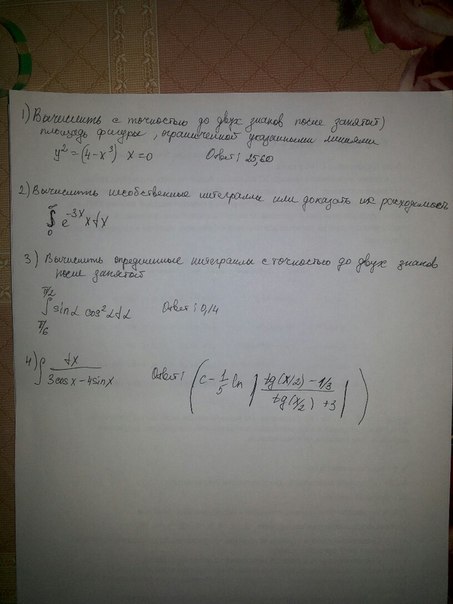 1) Вычислить с точностью до двух знаков после занятой)
площадь фигуры, ограниченной указанными линиями
y² = (4-x³) x=0 Ответ: 25,60
2) Вычислить несобственные интегралы или доказать их расходимость
∫₀^∞ e^(-3x) x dx
3) Вычислить определинные интегралы с точностью до двух знаков
после занятой
∫_{π/6}^{π/2} sinα cos²α dα Ответ: 0,14
4) ∫ dx / (3cosx - 4sinx) Ответ: (c - 1/5 ln | (tg(x/2) - 1/3) / (tg(x/2) + 3) |)